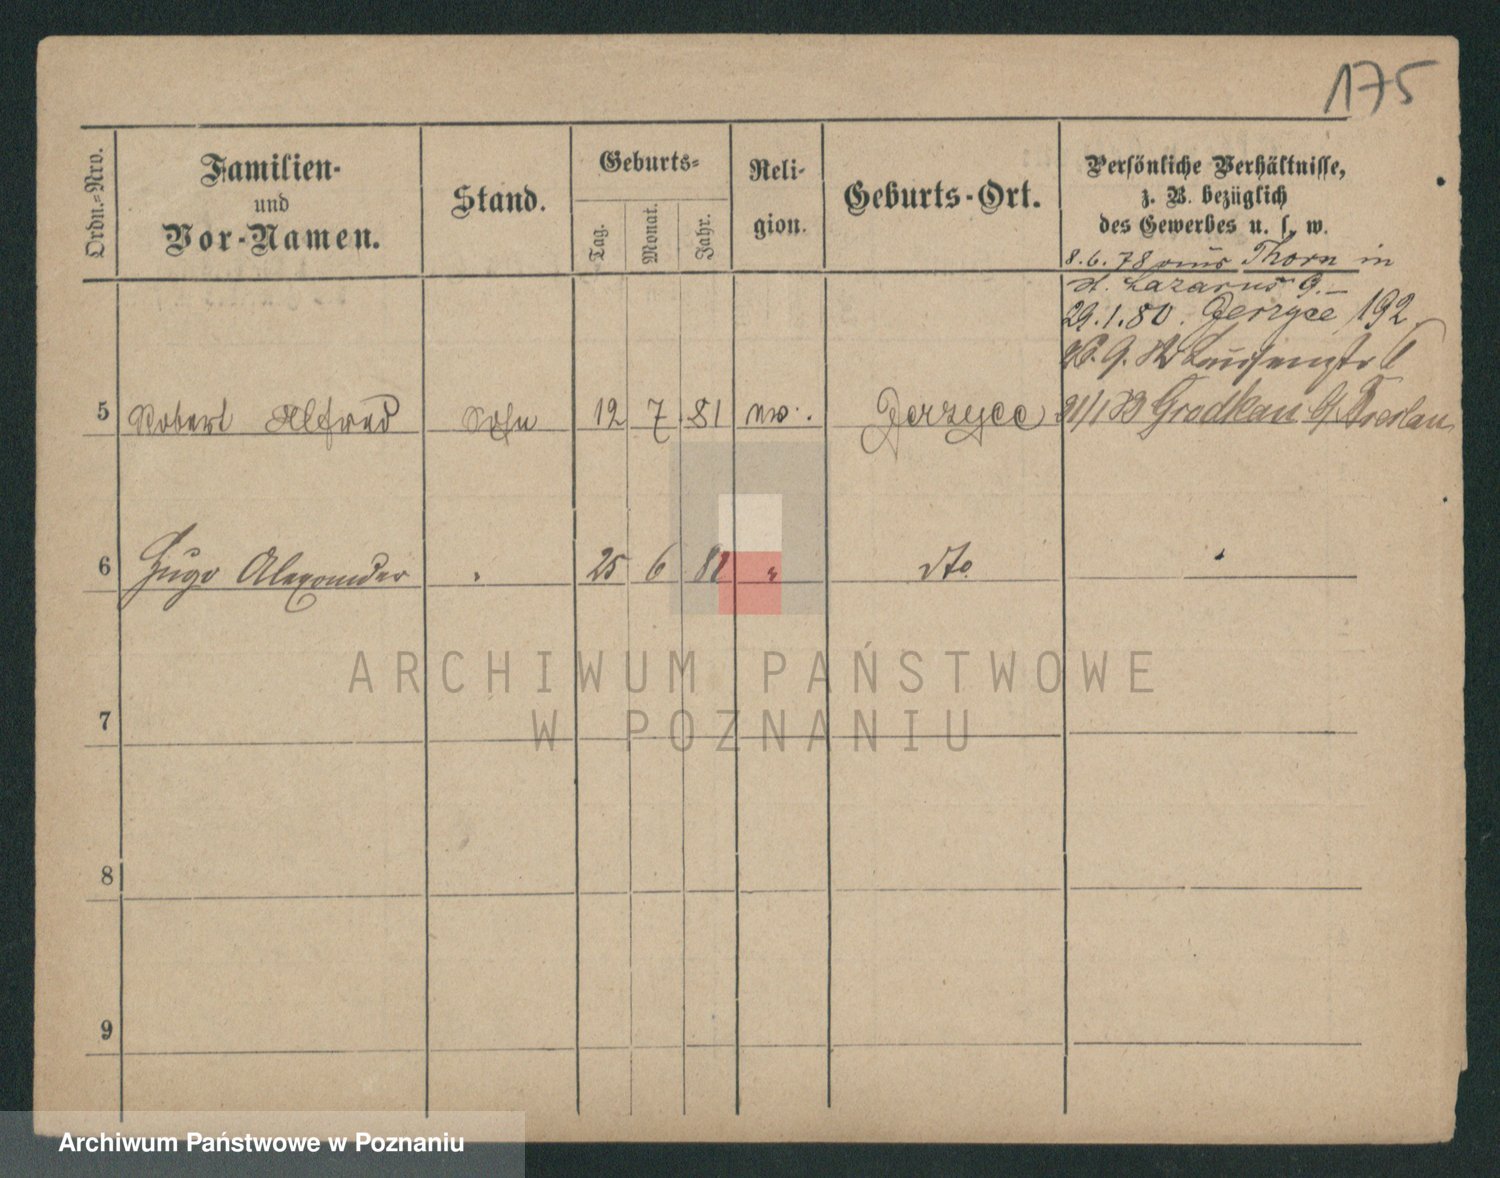 175
Ordn.-Nro.
Familien-
und
Vor-Namen.
Stand.
Geburts-
Tag.
Monat.
Jahr.
Reli-
gion.
Geburts-Ort.
Persönliche Verhältnisse,
z. B. bezüglich
des Gewerbes u. s. w.
8. 6. 78 aus Thorn in
St. Lazarus 9. –
29. 1. 80. Jerzyce 192
5 Robert Alfred Sohn 12 7. 81 ev. Jerzyce 31/1 83 Grodkau Breslau
6 Hugo Alexander " 25 6 82 " dto "
7
8
9
ARCHIWUM PAŃSTWOWE
W POZNANIU
Archiwum Państwowe w Poznaniu